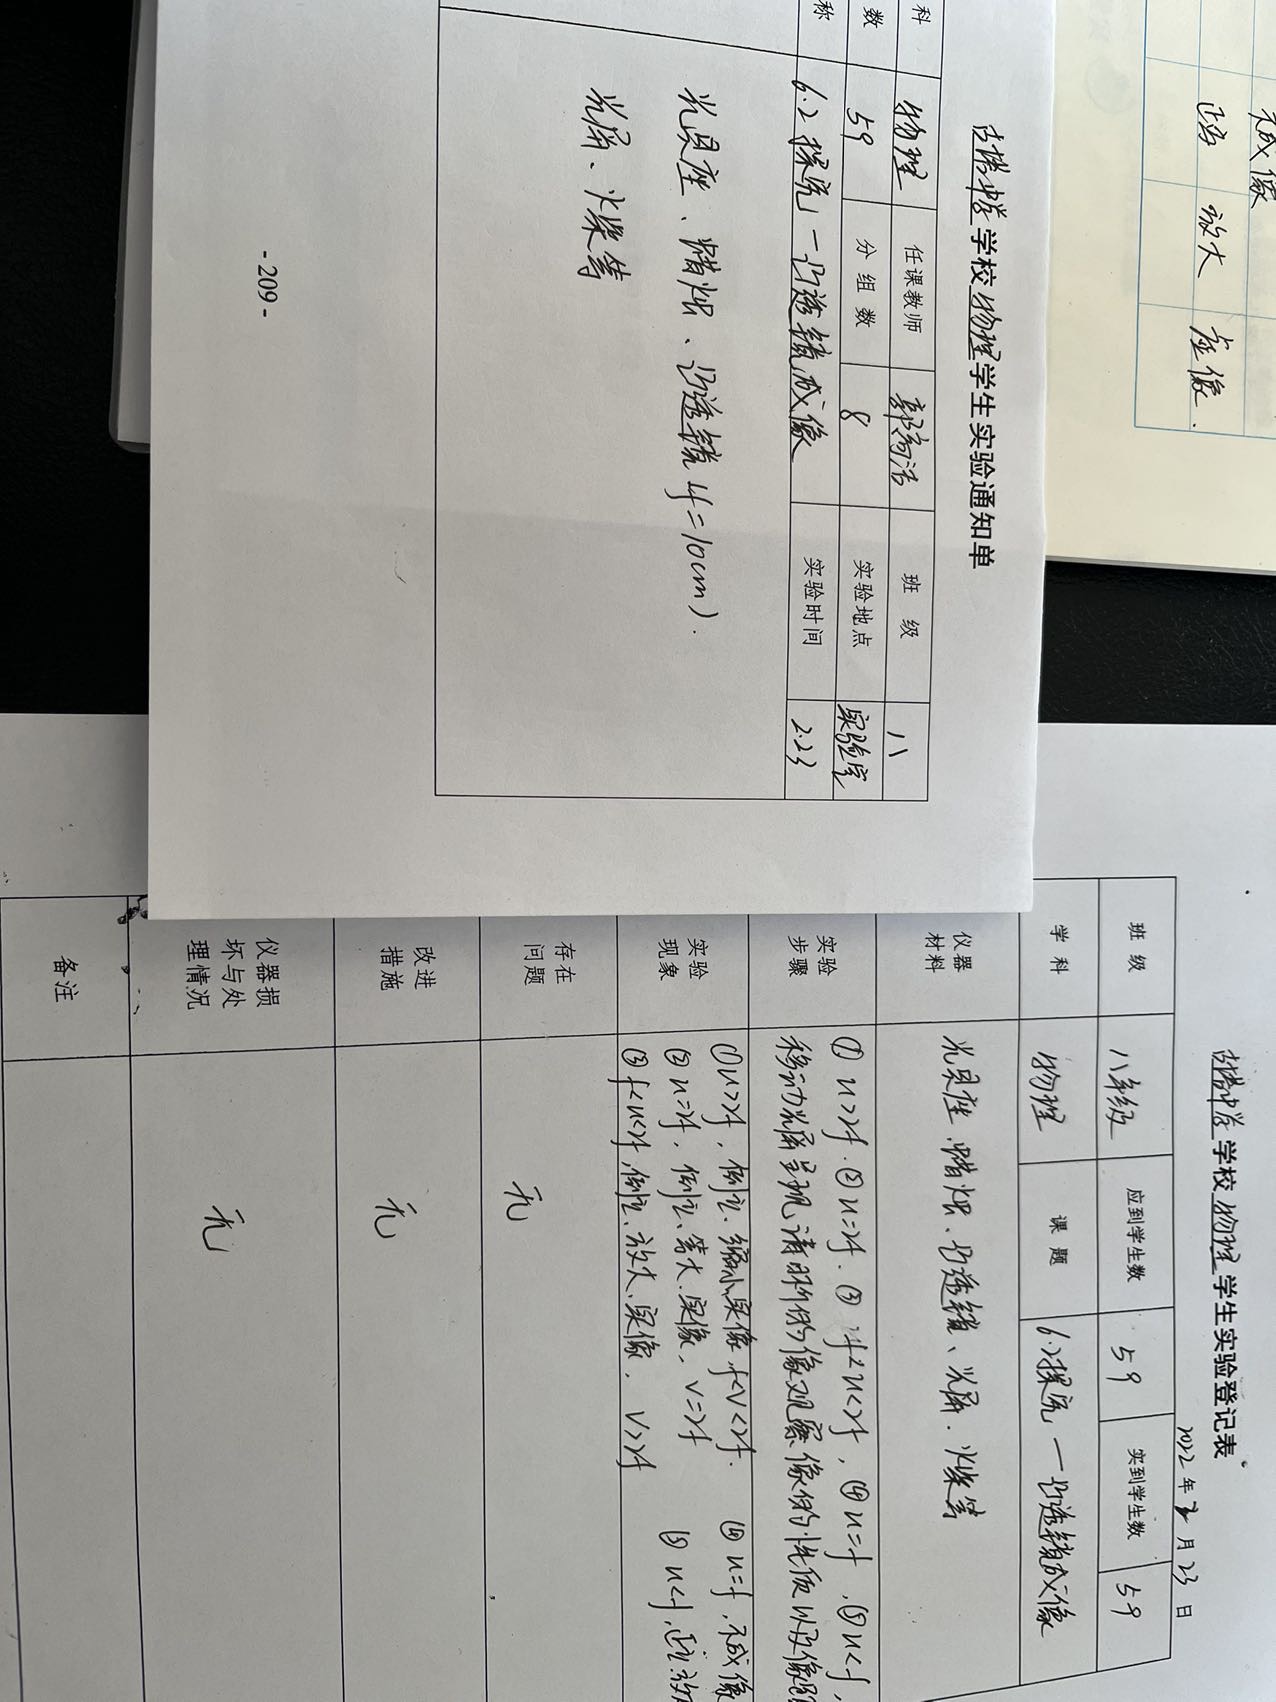 学校物理学生实验通知单
科
物理
任课教师
班级
八
数
59
分组数
8
实验地点
实验室
称
6.2探究—凸透镜成像
实验时间
2.23
光具座、蜡烛、凸透镜(f=10cm).
光屏、火柴等
-209-
成像
正 放大 虚像.
学校物理学生实验登记表
2022年2月23日
班级
八年级
应到学生数
59
实到学生数
59
学科
物理
课题
6.2探究—凸透镜成像
仪器
材料
光具座、蜡烛、凸透镜、光屏、火柴等
实验
步骤
①u>2f.②u=2f.③f<u<2f,④u=f,⑤u<f,
移动光屏呈现清晰的像观察像的性质以及像距
实验
现象
①u>2f,倒立、缩小实像.f<v<2f.
②u=2f,倒立、等大、实像,v=2f
③f<u<2f,倒立、放大、实像.v>2f
④u=f,不成像
⑤u<f,正立放
存在
问题
无
改进
措施
无
仪器损
坏与处
理情况
无
备注